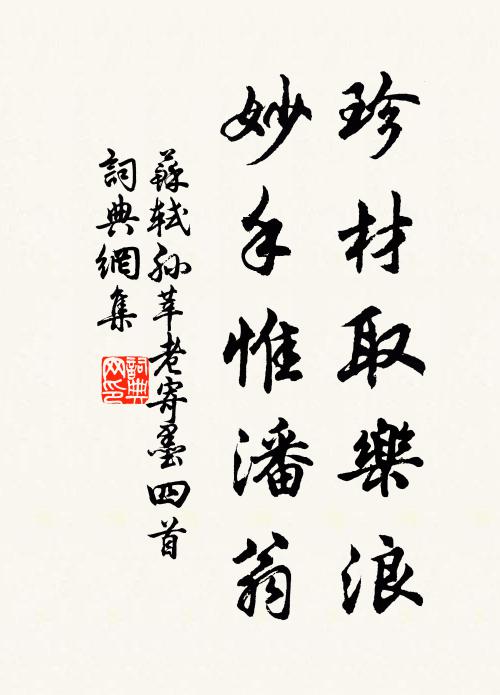 珍材取樂浪
妙手惟潘翁
蘇軾孫莘老寄墨四首
詞典網集
詞典
网印